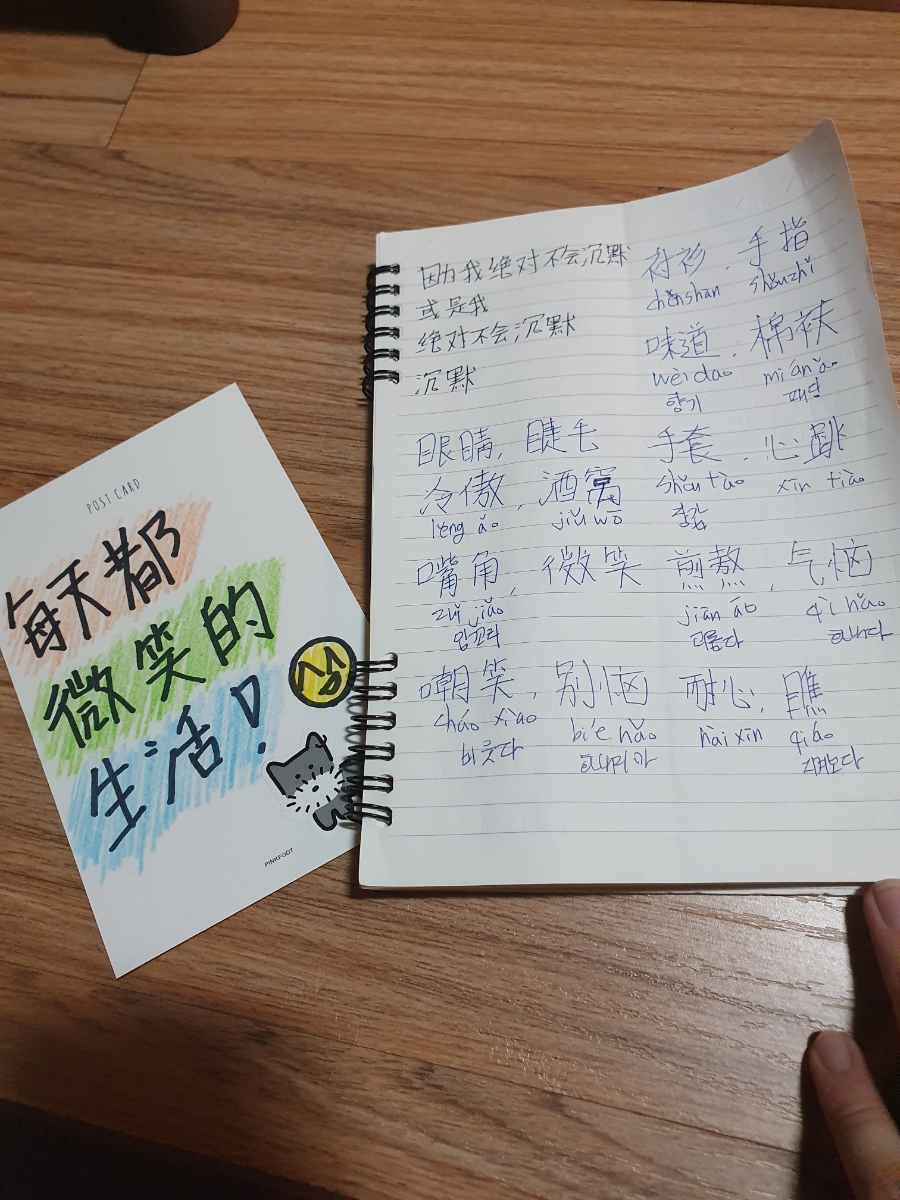 POST CARD
每天都
微笑的
生活!
PINKFOOT
因为我绝对不会沉默
或是我
绝对不会沉默
沉默
眼睛, 睫毛
冷傲, 酒窝
lěng ào jiǔ wō
嘴角, 微笑
zuǐ jiǎo
입꼬리
嘲笑, 别恼
cháo xiào bié nǎo
비웃다 화내지마
衬衫, 手指
chènshān shǒuzhǐ
味道, 棉袄
wèi dao mián ǎo
향기 패딩
手套, 心跳
shǒu tào xīn tiào
장갑
煎熬, 气恼
jiān áo qì nǎo
괴롭다 화내다
耐心, 瞧
nài xīn qiáo